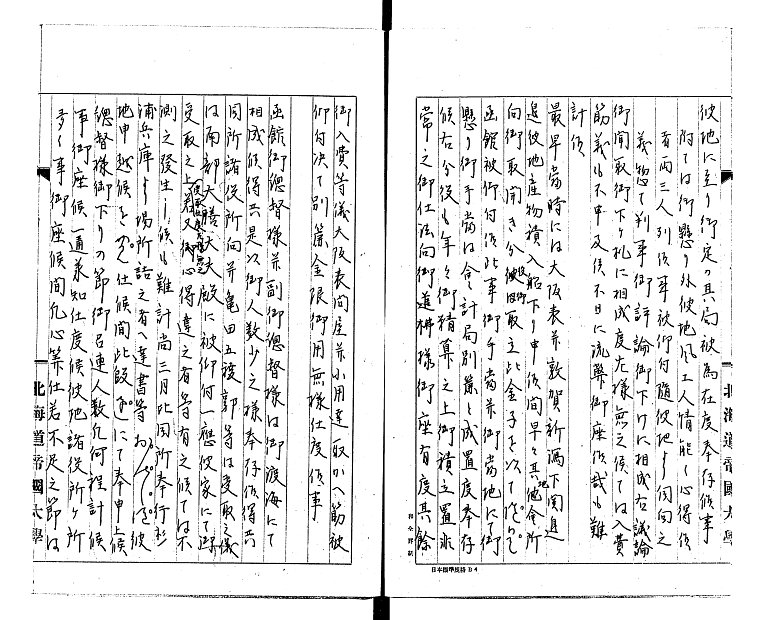 彼地に至り御定の其局被為在度奉存候事
附ては御懸り外彼地風土人情能々心得候
者両三人別段事被仰付随彼地より伺向之
義惣て判事御評論御下ケに相成右議論
御聞取御下ケ札に相成度左様無之候ては入費
筋義も不申及候不日に流弊御座候哉も難
計候
最早当時には大阪表并敦賀新潟下関辺
迄彼地産物積入船下り申候間早々其他会所
向御取開き分 取立此金子を以て
函館被仰付候此事御手当并御当地にて御
懸り御手当は会計局別簾と成置度奉存
候右分後も年々御精算之上御積立置非
常之御仕法向御進 様御座有度其余
御入費等儀大阪表問屋并小用達取かへ筋被
仰付決て別簾金銀御用無様仕度候事
函館御総督様并副御総督様は御渡海にて
相成候得共是以御人数少之様奉存候得共
同所諸役所向并亀田五稜郭等は受取之儀
は南部大膳大夫殿に被仰付一應彼家にて御
受取之上若又御心得違之者等有之候ては不
測之発生し候も難計尚三月比同所奉行杉
浦兵庫より場所詰之者へ達書等 彼
地申越候を 仕候間此段 にて奉申上候
総督様御下りの節御召連人数凡何程計候
事御座候一通承知仕度候彼地諸役所ヶ所
多く事御座候間凡心算仕若不足之節は
北海道帝國大學
北海道帝國大學
日本標準規格B4